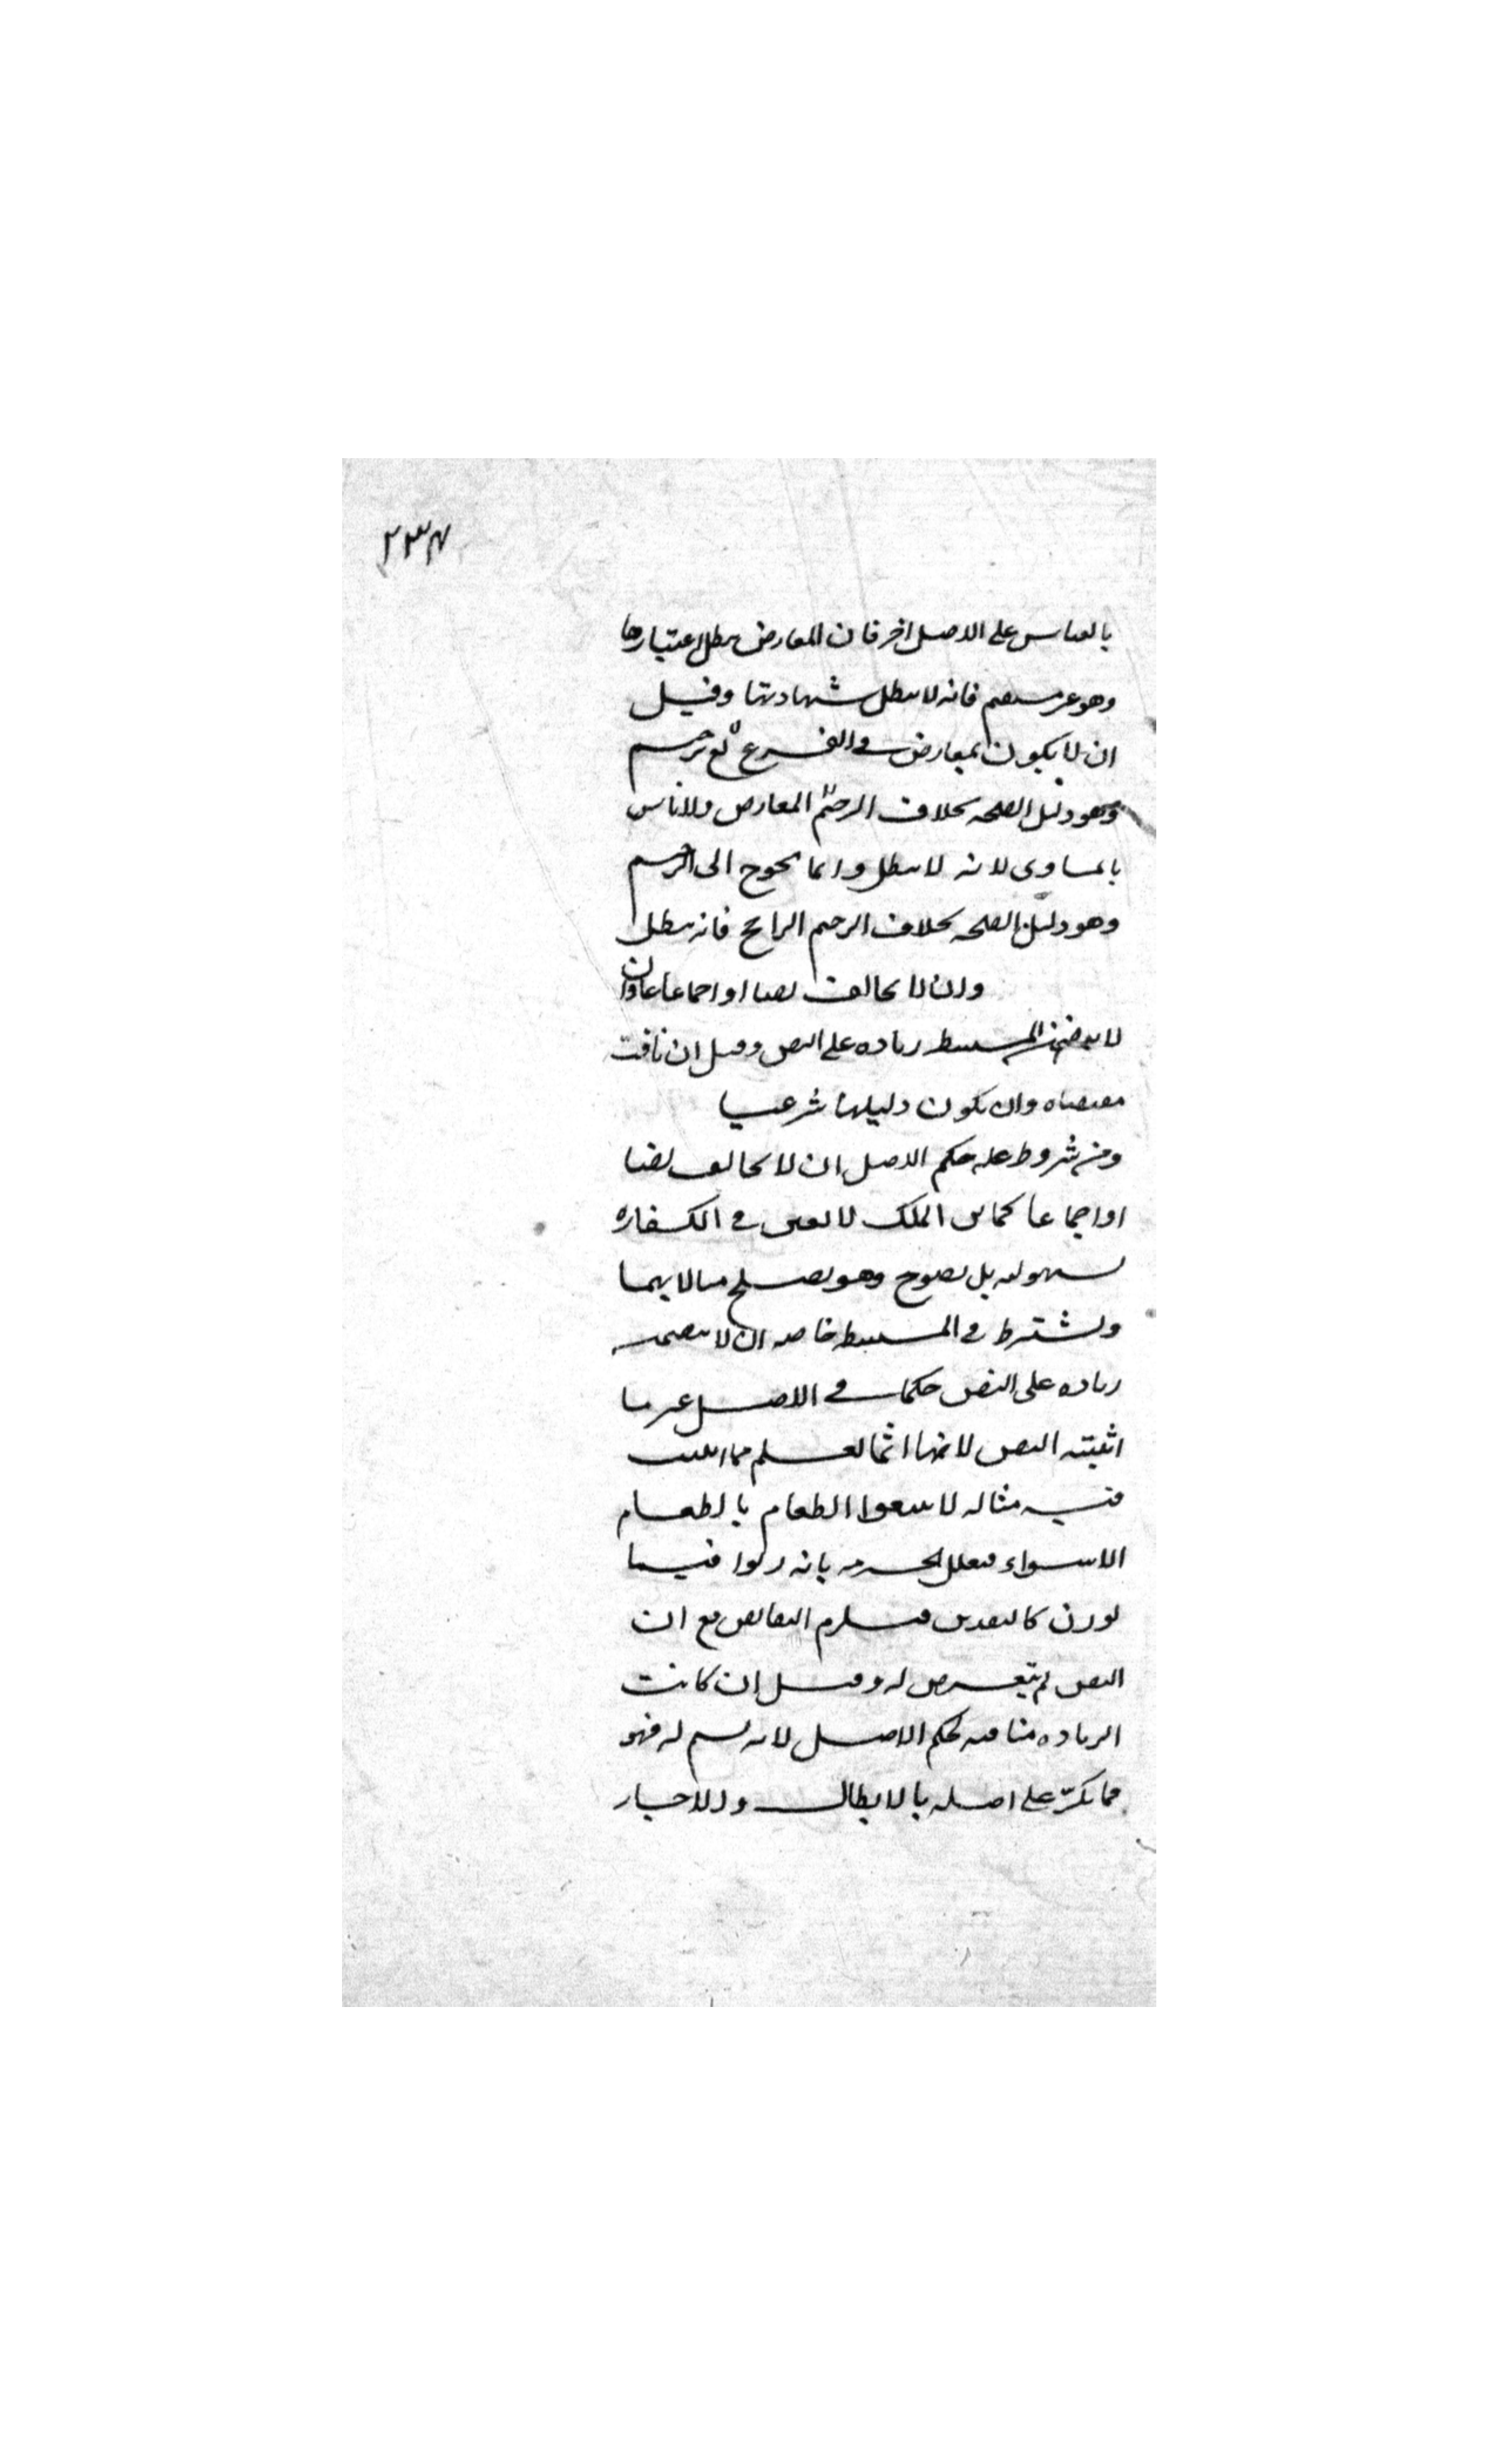 ٢٣٧
بالقياس على الاصل اخر فان المعارض يبطل اعتبارها
وهو غير فانه لا يبطل شهادتها وقيل
ان لا يكون بمعارض في الفرع مع ترجيح
وهو دليل الصحه بخلاف الرجح المعارض ولا باس
بالمساوى لانه لا يبطل وانما يحوج الى الترجيح
وهو دليل الصحه بخلاف الراجح فانه يبطل
وان لا تخالف نصا او اجماعا وان
لا تتضمن المستنبطه زياده على النص وقيل ان نافت
مقتضاه وان يكون دليلها شرعيا
ومن شروط عله حكم الاصل ان لا تخالف نصا
او اجماعا الملك لا يعتق في الكفاره
لسهولته بل يصوم وهو يصلح مثالا لهما
ويشترط في المستنبطه خاصه ان لا تتضمن
زياده على النص حكما في الاصل غير ما
اثبته النص لانها انما تعلم مما اثبت
فيه مثاله لا تبيعوا الطعام بالطعام
الا سواء فتعلل الحرمه بانه ربوا فيما
يوزن كالنقدين فيلزم التقابض مع ان
النص لم يتعرض له وقيل ان كانت
الزياده منافيه لحكم الاصل لانه نسخ له فهو
مما يكرّ على اصله بالابطال